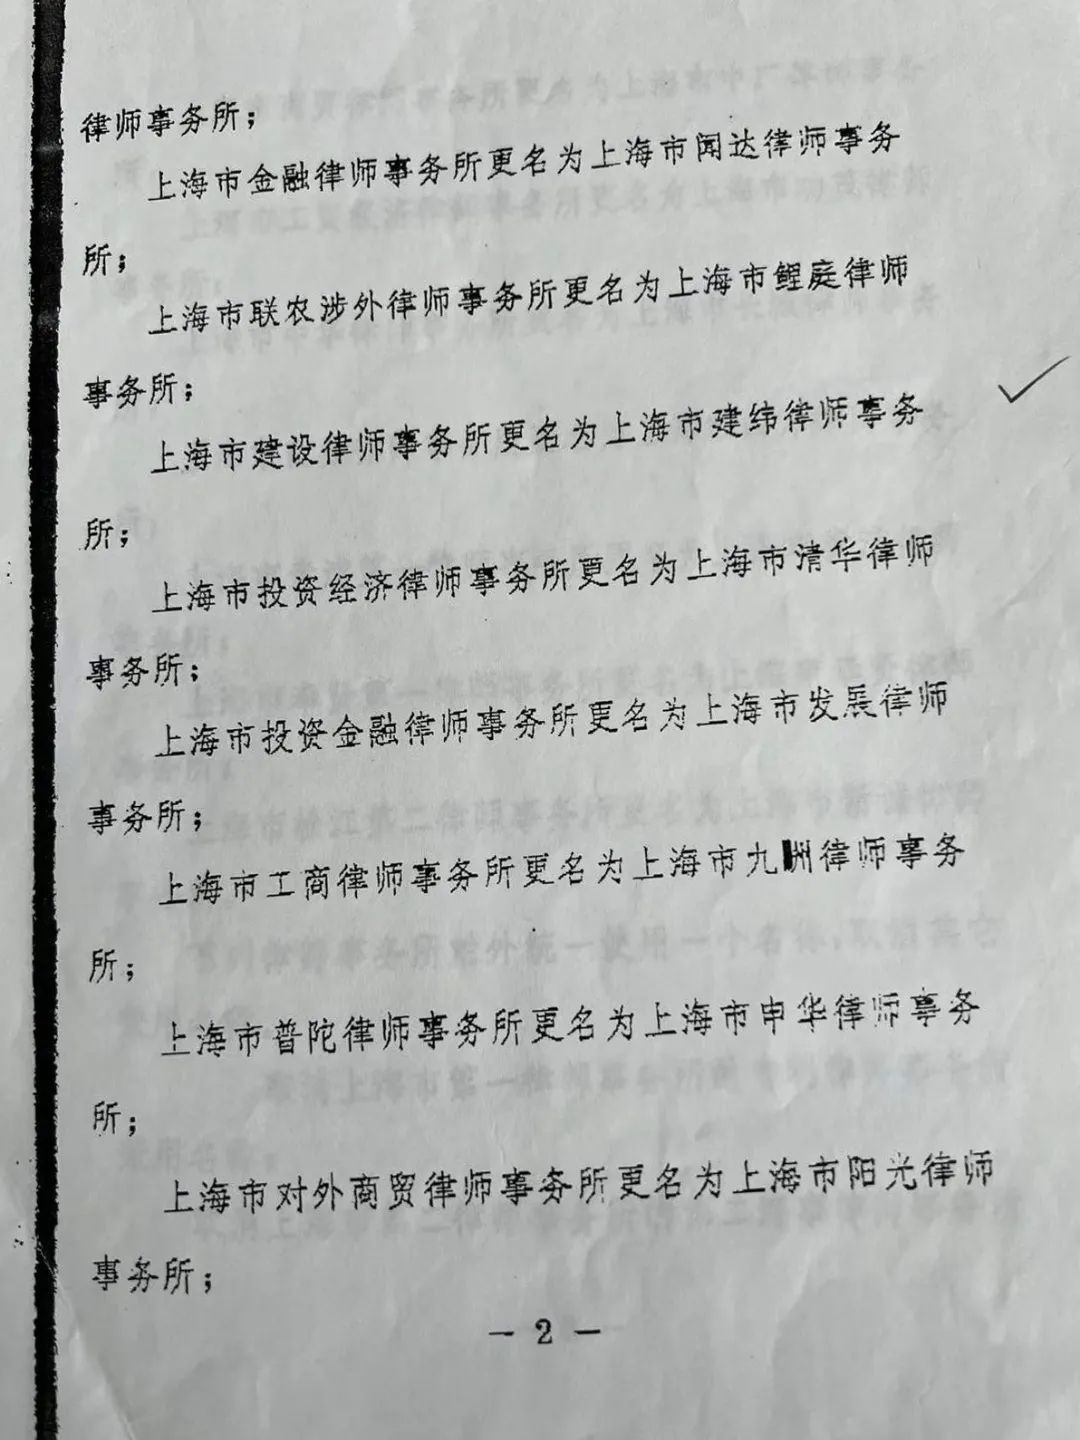 律师事务所；
上海市金融律师事务所更名为上海市闻达律师事务
所；
上海市联农涉外律师事务所更名为上海市鲤庭律师
事务所；
上海市建设律师事务所更名为上海市建纬律师事务
所；
上海市投资经济律师事务所更名为上海市清华律师
事务所；
上海市投资金融律师事务所更名为上海市发展律师
事务所；
上海市工商律师事务所更名为上海市九洲律师事务
所；
上海市普陀律师事务所更名为上海市申华律师事务
所；
上海市对外商贸律师事务所更名为上海市阳光律师
事务所；
— 2 —